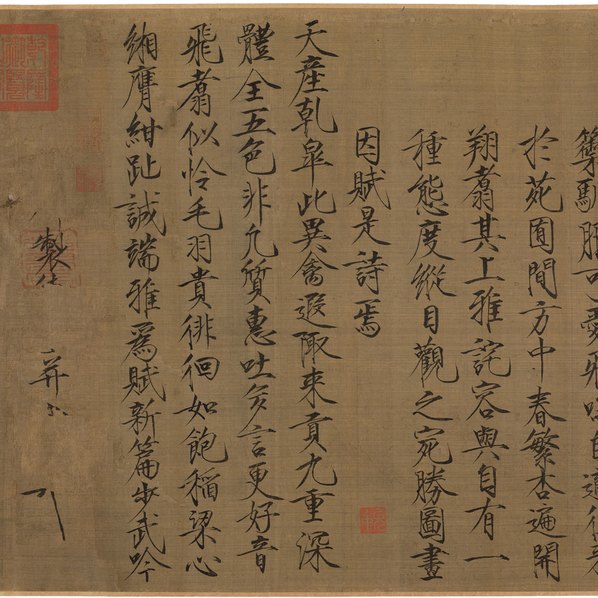 籞馴服可愛飛鳴自適往來
於苑囿間方中春繁杏遍開
翔翥其上雅詫容與自有一
種態度縱目觀之宛勝圖畫
因賦是詩焉
天產乹皐此異禽遐陬來貢九重深
體全五色非凡質惠吐多言更好音
飛翥似怜毛羽貴徘徊如飽稻粱心
緗膺紺趾誠端雅爲賦新篇步武吟
製
并